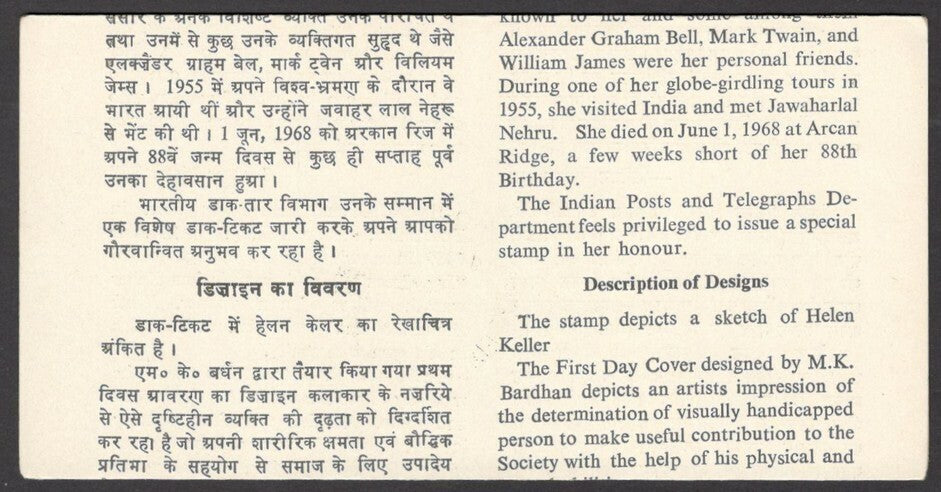 संसार के अनेक विशिष्ट व्यक्ति उनके परिचित थे
तथा उनमें से कुछ उनके व्यक्तिगत सुहृद थे जैसे
एलक्जैंडर ग्राहम बेल, मार्क ट्वेन और विलियम
जेम्स । 1955 में अपने विश्व-भ्रमण के दौरान वे
भारत आयी थीं और उन्होंने जवाहर लाल नेहरू
से भेंट की थी । 1 जून, 1968 को अरकान रिज में
अपने 88वें जन्म दिवस से कुछ ही सप्ताह पूर्व
उनका देहावसान हुआ ।
भारतीय डाक-तार विभाग उनके सम्मान में
एक विशेष डाक-टिकट जारी करके अपने आपको
गौरवान्वित अनुभव कर रहा है ।
डिज़ाइन का विवरण
डाक-टिकट में हेलन केलर का रेखाचित्र
अंकित है ।
एम० के० बर्धन द्वारा तैयार किया गया प्रथम
दिवस आवरण का डिज़ाइन कलाकार के नज़रिये
से ऐसे दृष्टिहीन व्यक्ति की दृढ़ता को दिग्दर्शित
कर रहा है जो अपनी शारीरिक क्षमता एवं बौद्धिक
प्रतिभा के सहयोग से समाज के लिए उपादेय
known to her and some among them
Alexander Graham Bell, Mark Twain, and
William James were her personal friends.
During one of her globe-girdling tours in
1955, she visited India and met Jawaharlal
Nehru. She died on June 1, 1968 at Arcan
Ridge, a few weeks short of her 88th
Birthday.
The Indian Posts and Telegraphs De-
partment feels privileged to issue a special
stamp in her honour.
Description of Designs
The stamp depicts a sketch of Helen
Keller
The First Day Cover designed by M.K.
Bardhan depicts an artists impression of
the determination of visually handicapped
person to make useful contribution to the
Society with the help of his physical and